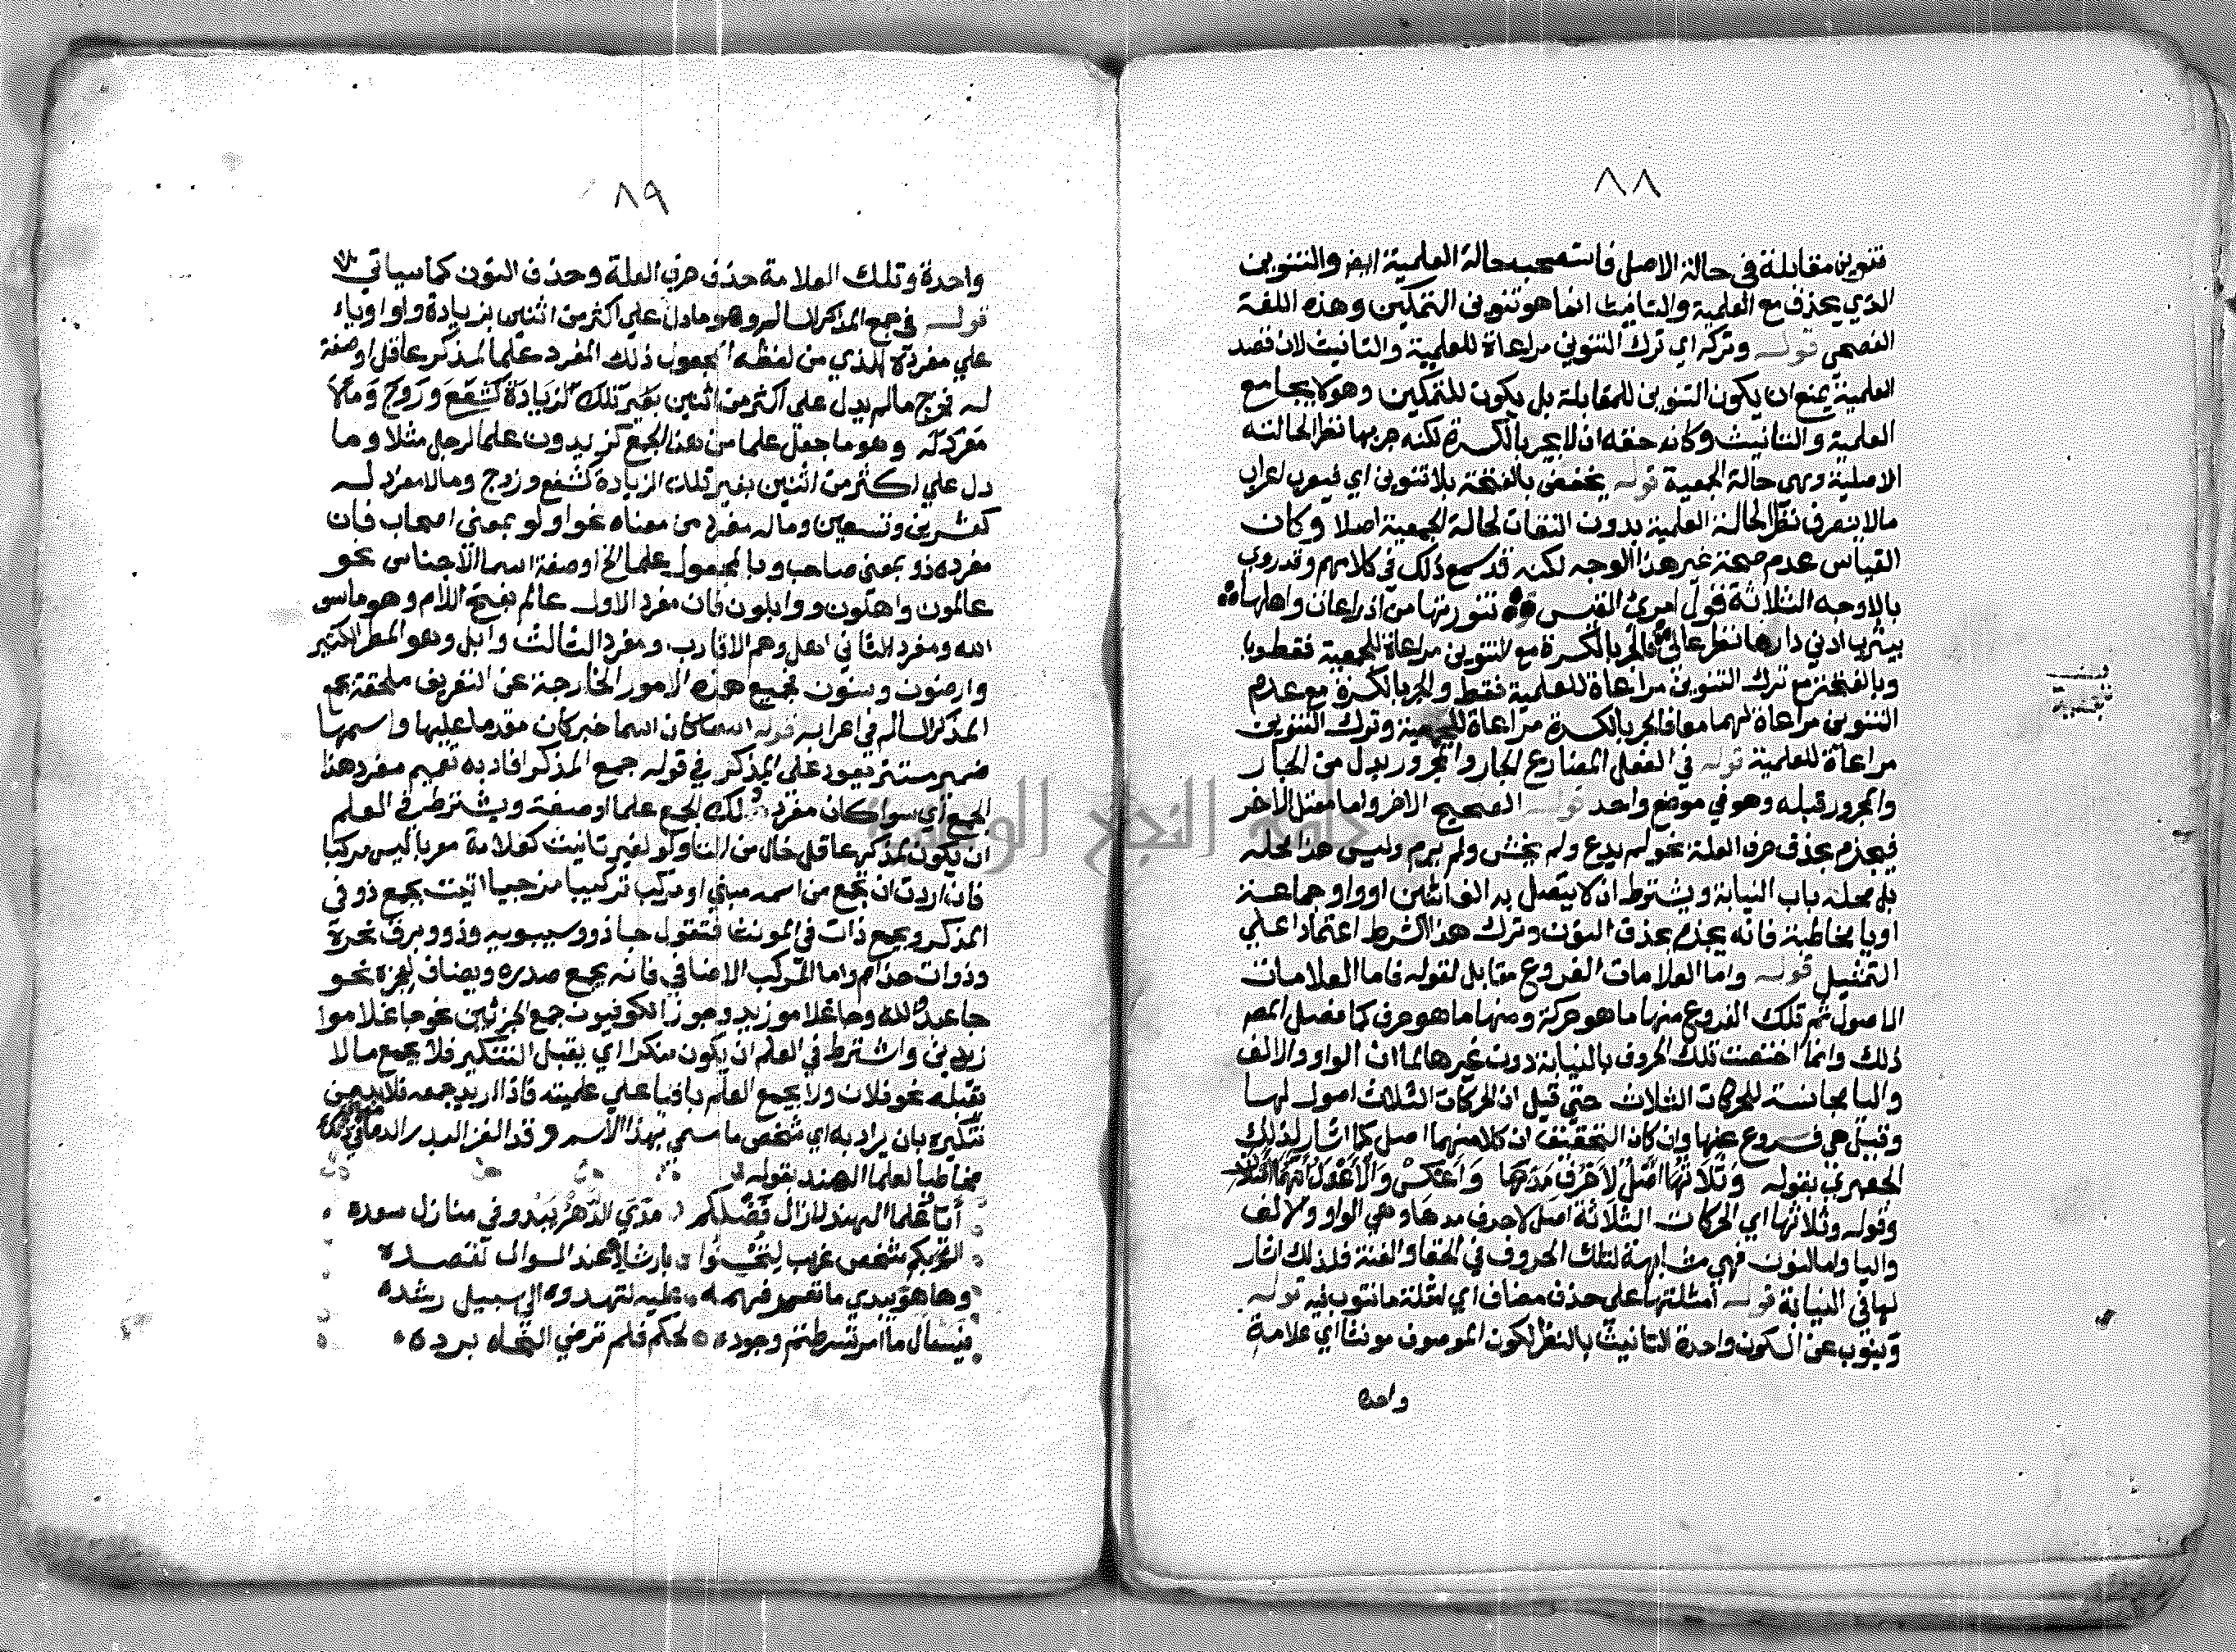 ٨٨
تنوين مقابلة في حالة الاصل فاستصحب حالة العلمية ايضا والتنوين
الذي يحذف مع العلمية والتانيث انما هو تنوين التمكين وهذه اللغة
الفصحي قوله وتركه اي ترك التنوين مراعاة للعلمية والتانيث لان قصد
العلمية يمنع ان يكون التنوين للمقابلة بل يكون للتمكين وهو لا يجامع
العلمية والتانيث وكان حقه ان لا يجر بالكسرة لكنه جر بها نظرا لحالته
الاصلية وهي حالة الجمعية قوله يخفض بالفتحة بلا تنوين اي فيعرب اعراب
مالا ينصرف نظرا لحالة العلمية بدون التفات لحالة الجمعية اصلا وكان
القياس عدم صحة غير هذا الوجه لكنه قد سمع ذلك في كلامهم وقد روي
بالاوجه الثلاثة قول امرئ القيس تنورتها من اذرعات واهلها
بيثرب ادني دارها نظر عالي فالجر بالكسرة مع التنوين مراعاة للجمعية فقط
وبالفتحة مع ترك التنوين مراعاة للعلمية فقط والجر بالكسرة مع عدم
التنوين مراعاة لهما معا فالجر بالكسرة مراعاة للجمعية وترك التنوين
مراعاة للعلمية قوله في الفعل المضارع الجار والمجرور بدل من الجار
والمجرور قبله وهو في موضع واحد قوله الصحيح الاخر واما معتل الاخر
فيجزم بحذف حرف العلة نحو لم يدع ولم يخش ولم يرم وليس هذا محله
بل محله باب النيابة ويشترط ان لا يتصل به الف اثنين او واو جماعة
او يا مخاطبة فانه يجزم بحذف النون وترك هذا الشرط اعتمادا علي
التمثيل قوله واما العلامات الفروع مقابل لقوله فاما العلامات
الاصول ثم تلك الفروع منها ما هو حركة ومنها ما هو حرف كما فصل المص
ذلك وانما اختصت تلك الحروف بالنيابة دون غيرها لما ان الواو والالف
واليا مجانسة للحركات الثلاث حتي قيل ان الحركات الثلاث اصول لها
وقيل هي فروع عنها وان كان التحقيق ان كلا منهما اصل كما اشار لذلك
الجعبري بقوله وثلاثها اصل لاحرف مدها واعكس والاعدل
وقوله وثلاثها اي الحركات الثلاثة اصل لاحرف مدها وهي الواو والالف
واليا واما النون فهي مشابهة لتلك الحروف في الخفا والغنة فلذلك اشار
لها في النيابة قوله امثلتها علي حذف مضاف اي امثلة ما تنوب فيه قوله
وينوب عن السكون واحدة التانيث بالنظر لكون الموصوف مونثا اي علامة
واحدة
وقف
٨٩
واحدة وتلك العلامة حذف حرف العلة وحذف النون كما سياتي
قوله في جمع المذكر السالم وهو ما دل علي اكثر من اثنين بزيادة واو او ياء
علي مفرده الذي من لفظه المجعول ذلك المفرد علما لمذكر عاقل او صفة
له فخرج مالم يدل علي اكثر من اثنين بغير تلك الزيادة كشفع وزوج ومالا
مفرد له وهو ما جعل علما من هذا الجمع كزيدون علما لرجل مثلا وما
دل علي اكثر من اثنين بغير تلك الزيادة كشفع وزوج ومالا مفرد له
كعشرين وتسعين وما له مفرد من معناه نحو اولو بمعني اصحاب فان
مفرده ذو بمعني صاحب وبالمجعول علما الخ او صفة اسما الاجناس نحو
عالمون واهلون ووابلون فان مفرد الاول عالم بفتح اللام وهو ما سوي
الله ومفرد الثاني اهل وهم الاقارب ومفرد الثالث وابل وهو المطر الكثير
وارضون وسنون فجميع هذه الامور الخارجة عن التعريف ملحقة بجمع
المذكر السالم في اعرابه قوله اسما كان اسما خبر كان مقدم عليها واسمها
ضمير مستتر يعود علي المذكر في قوله جمع المذكر افاد به تعميم مفرد هذا
الجمع اي سوا كان مفرد ذلك الجمع علما او صفة ويشترط في العلم
ان يكون لمذكر عاقل خال من التا ولو لغير تانيث كعلامة معربا ليس مركبا
فان اردت ان تجمع من اسمه مبني او مركب تركيبا مزجيا اتيت بجمع ذو في
المذكر وبجمع ذات في المونث فتقول جا ذوو سيبويه وذوو برق نحره
وذوات حذام واما المركب الاضافي فانه يجمع صدره ويضاف لعجزه نحو
جا عبدو الله وجا غلامو زيد وجوز الكوفيون جمع الجزئين نحو جا غلامو
زيدين واشترط في العلم ان يكون منكرا اي يقبل التنكير فلا يجمع مالا
يقبله نحو فلان ولا يجمع العلم باقيا علي علميته فاذا اريد جمعه فلا بد من
تنكيره بان يراد به اي شخص ما سمي بهذا الاسم وقد الغز البدر الدماميني
مخاطبا لعلما الهند بقوله
أيا علما الهند لا زال فضلكم مدي الدهر يبدو في منازل سعوده
الم بكم شخص غريب لتحسنوا بارشاده عند السوال لقصده
وها هو يبدي ما تعسر فهمه عليه لتهدوه الي سبيل رشده
فيسال ما امر شرطتم وجوده لحكم فلم ترض النحاه برده